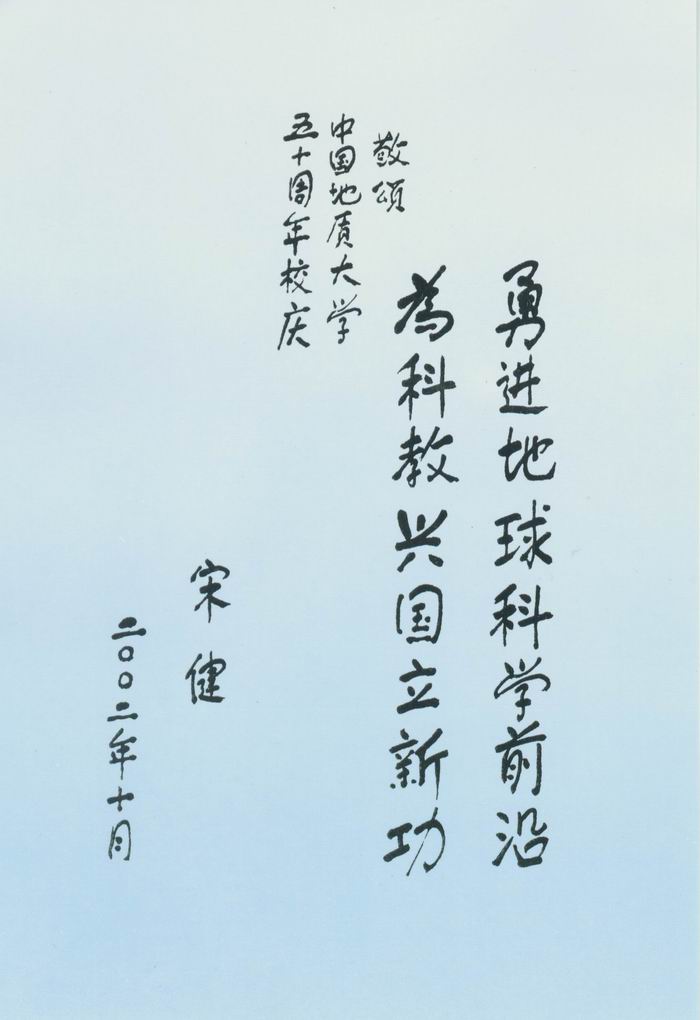 敬颂
中国地质大学
五十周年校庆
勇进地球科学前沿
為科教兴国立新功
宋健
二〇〇二年十月